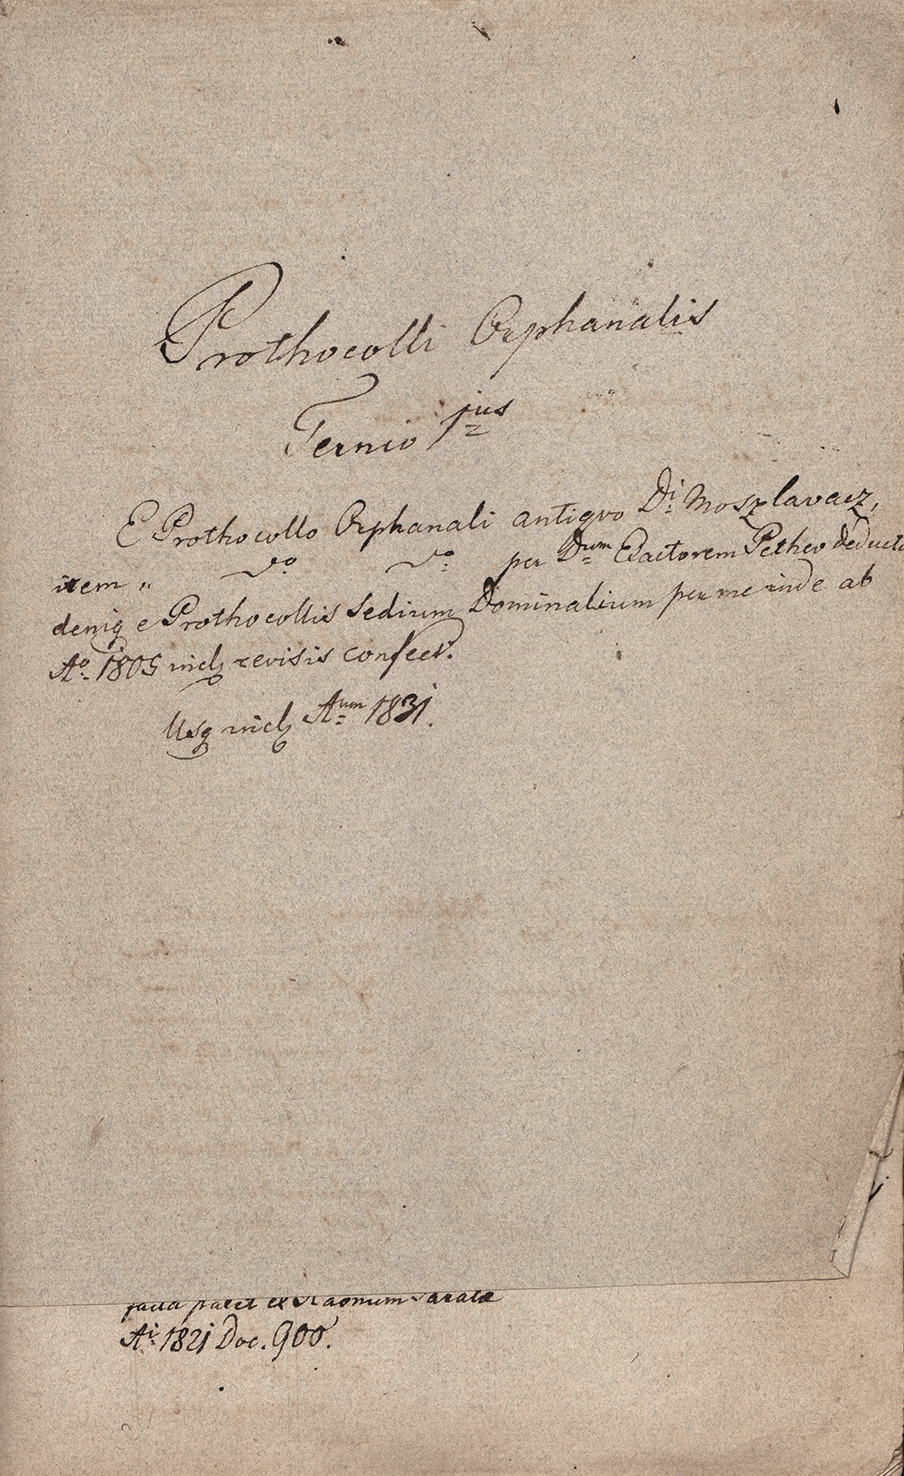 Prothocolli Orphanalis
Ternio 1mus
E Prothocollo Orphanali antiquo Di Moszlavacz,
item „ do do per Dum Exactorem Petheo deducto
deniq e Prothocollis Sedium Dominalium per me inde ab
Ao 1805 incl revisis confect.
Usq incl Aum 1831.
facta patet ex
Ai 1821 Doc. 900.